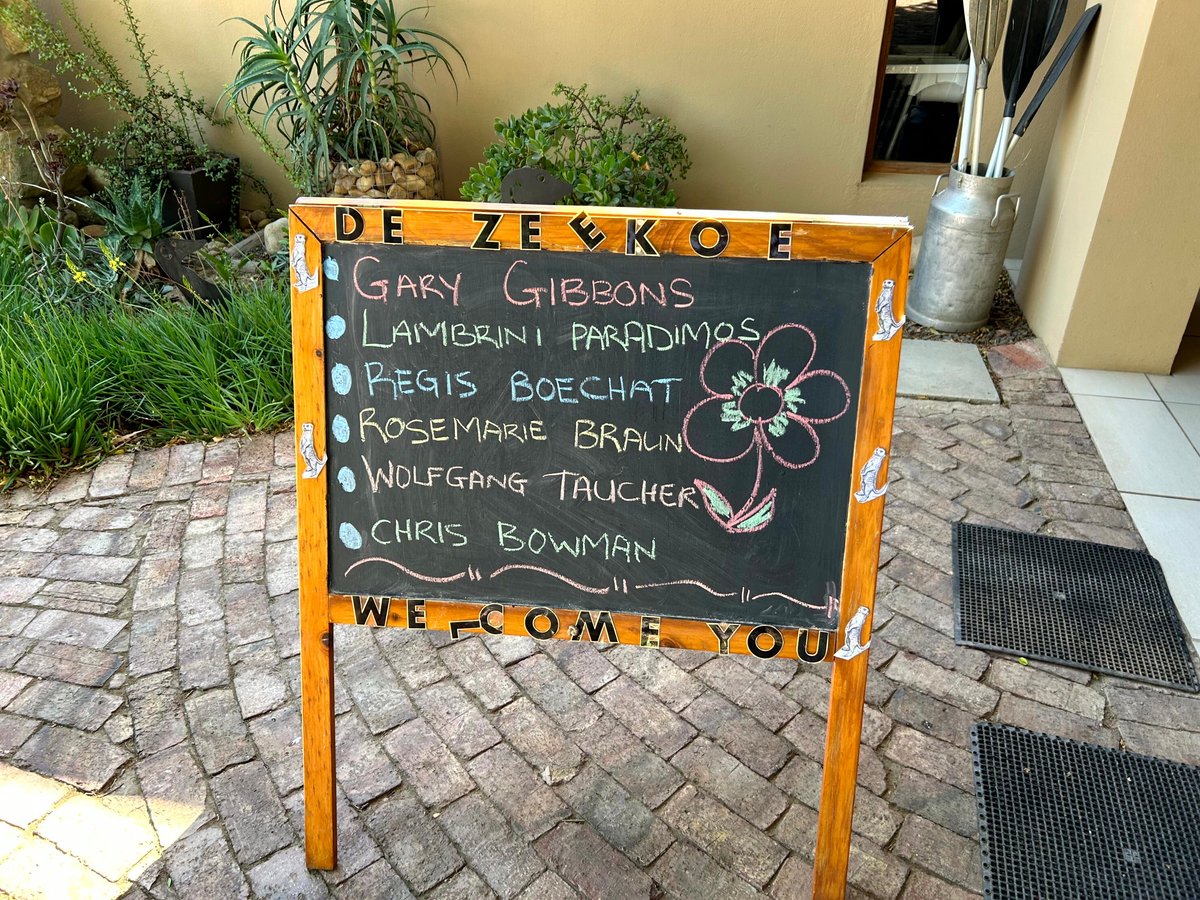 DE ZEEKOE
GARY GIBBONS
LAMBRINI PARADIMOS
REGIS BOECHAT
ROSEMARIE BRAUN
WOLFGANG TAUCHER
CHRIS BOWMAN
WELCOME YOU